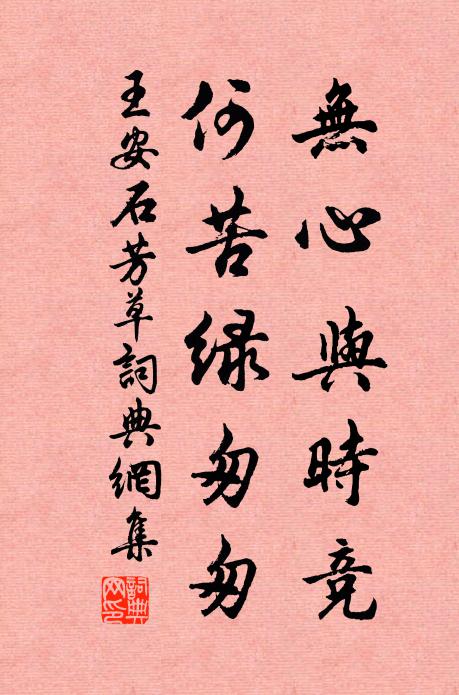 無心與時竞
何苦緑匆匆
王安石芳草詞典網集
詞典網印